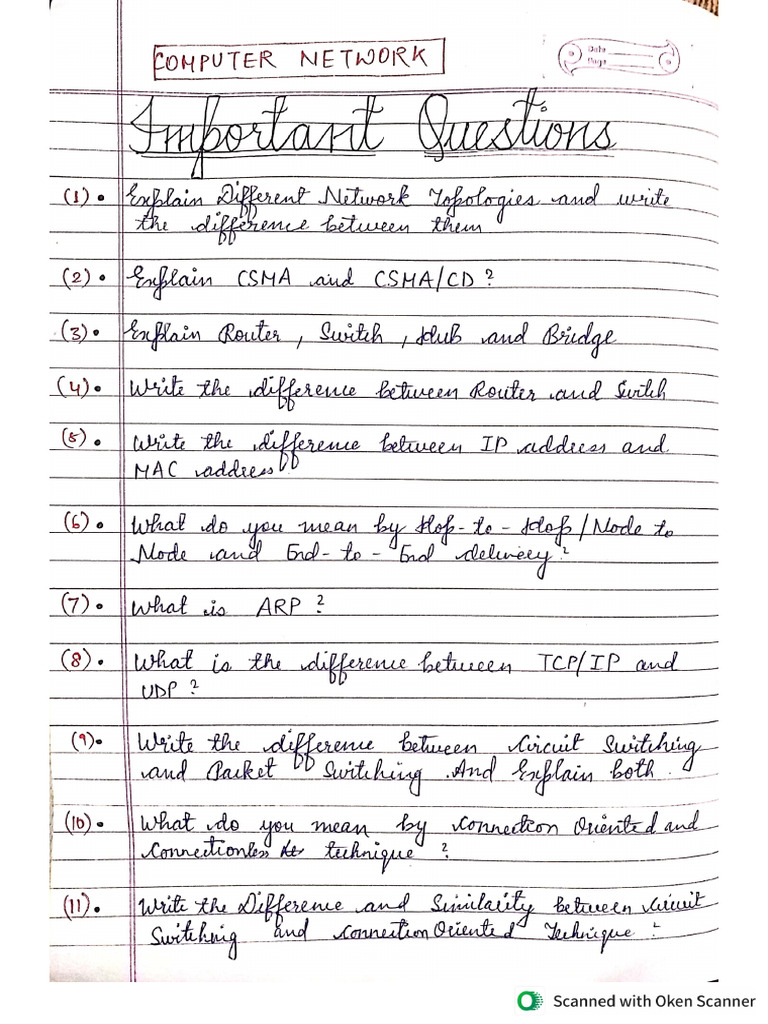 COMPUTER NETWORK
Date
Page
Important Questions
(1). Explain Different Network Topologies and write
the difference between them
(2). Explain CSMA and CSMA/CD ?
(3). Explain Router, Switch, Hub and Bridge
(4). Write the difference between Router and Switch
(5). Write the difference between IP address and
MAC address
(6). What do you mean by Hop-to-Hop/Node to
Node and End-to-End delivery?
(7). What is ARP ?
(8). What is the difference between TCP/IP and
UDP ?
(9). Write the difference between Circuit Switching
and Packet Switching And Explain both.
(10). What do you mean by Connection Oriented and
Connectionless technique ?
(11). Write the Difference and Similarity between Circuit
Switchnig and Connection Oriented Technique ?
Scanned with Oken Scanner